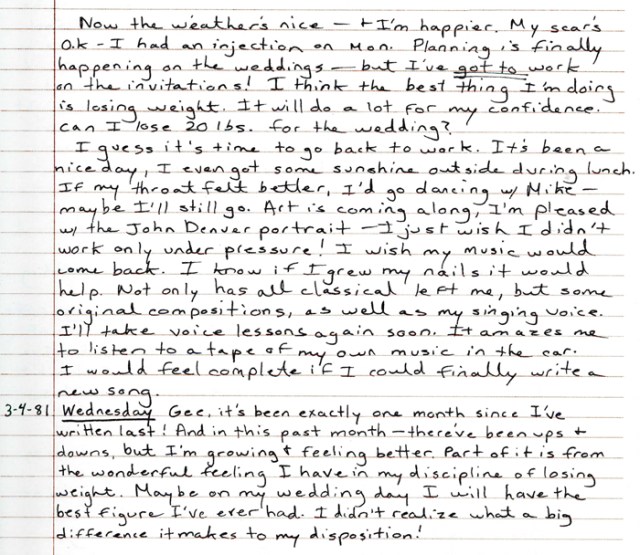 Now the weather's nice - + I'm happier. My scar's
O.K - I had an injection on Mon. Planning is finally
happening on the weddings - but I've got to work
on the invitations! I think the best thing I'm doing
is losing weight. It will do a lot for my confidence.
Can I lose 20 lbs. for the wedding?
I guess it's time to go back to work. It's been a
nice day, I even got some sunshine outside during lunch.
If my throat felt better, I'd go dancing w/ Mike -
maybe I'll still go. Art is coming along, I'm pleased
w/ the John Denver portrait - I just wish I didn't
work only under pressure! I wish my music would
come back. I know if I grew my nails it would
help. Not only has all classical left me, but some
original compositions, as well as my singing voice.
I'll take voice lessons again soon. It amazes me
to listen to a tape of my own music in the car.
I would feel complete if I could finally write a
new song.
3-4-81 Wednesday Gee, it's been exactly one month since I've
written last! And in this past month - there've been ups +
downs, but I'm growing + feeling better. Part of it is from
the wonderful feeling I have in my discipline of losing
weight. Maybe on my wedding day I will have the
best figure I've ever had. I didn't realize what a big
difference it makes to my disposition!